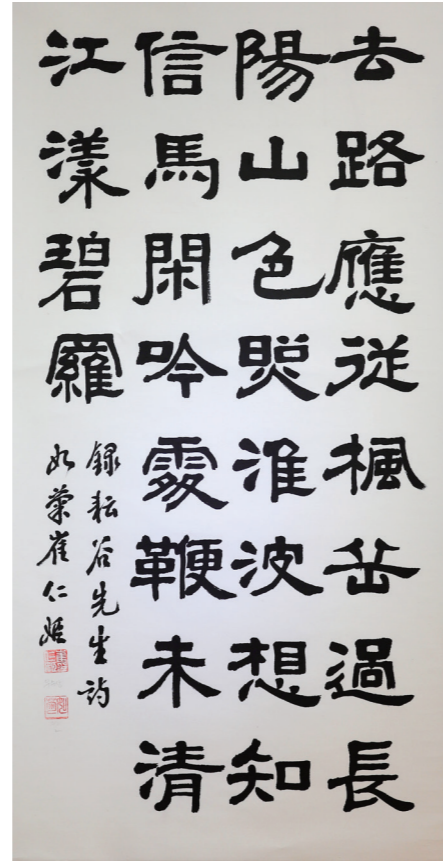 去路應從楓岳過長
陽山色照淮波想知
信馬閑吟處鞭未清
江漾碧羅
錄耘谷先生詩
如崔仁姬